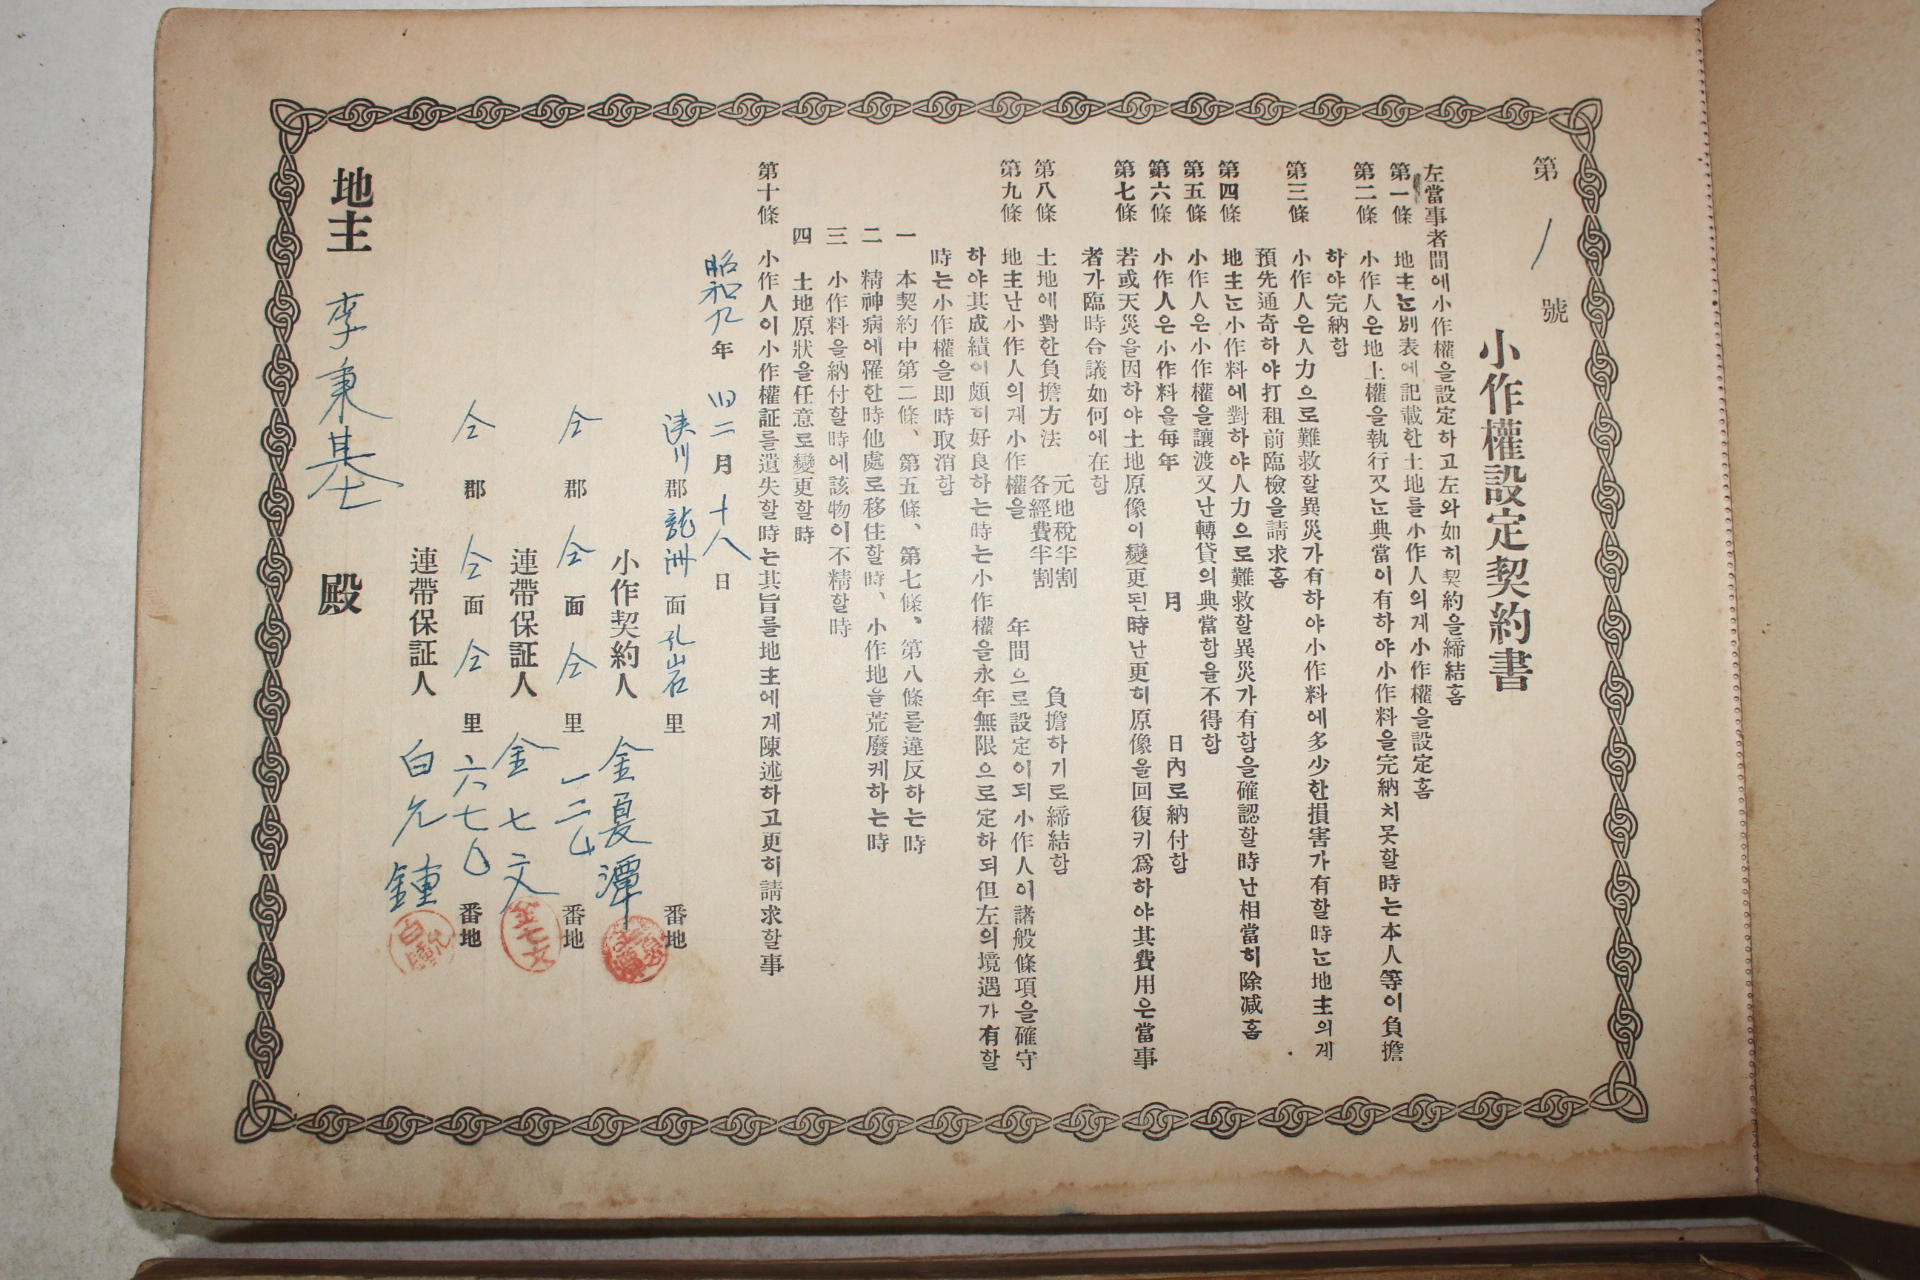 第 1 號
小作權設定契約書
左當事者間에小作權을設定하고左와如히契約을締結홈
第一條 地主는別表에記載한土地를小作人의게小作權을設定홈
第二條 小作人은地上權을執行又는典當이有하야小作料을完納치못할時는本人等이負擔
하야完納함
第三條 小作人은人力으로難救할異災가有하야小作料에多少한損害가有할時는地主의게
預先通奇하야打租前臨檢을請求홈
第四條 地主는小作料에對하야人力으로難救할異災가有함을確認할時난相當히除減홈
第五條 小作人은小作權을讓渡又난轉貸의典當함을不得함
第六條 小作人은小作料을每年 月 日內로納付함
第七條 若或天災을因하야土地原像이變更된時난更히原像을回復키爲하야其費用은當事
者가臨時合議如何에在함
第八條 土地에對한負擔方法 元地稅半割 各經費半割 負擔하기로締結함
第九條 地主난小作人의게小作權을 年間으로設定이되小作人이諸般條項을確守
하야其成績이頗히好良하는時는小作權을永年無限으로定하되但左의境遇가有할
時는小作權을即時取消함
一 本契約中第二條、第五條、第七條、第八條를違反하는時
二 精神病에罹한時他處로移住할時、小作地을荒廢케하는時
三 小作料을納付할時에該物이不精할時
四 土地原狀을任意로變更할時
第十條 小作人이小作權証를遺失할時는其旨를地主에게陳述하고更히請求할事
昭和九年 四二月 十八日
陜川郡龍洲面孔岩里 番地
小作契約人 金夏潭
仝郡仝面仝里 一二 番地
連帶保証人 金七文
仝郡仝面仝里 六七〇番地
連帶保証人 白允鍾
地主 李秉基 殿
金七文